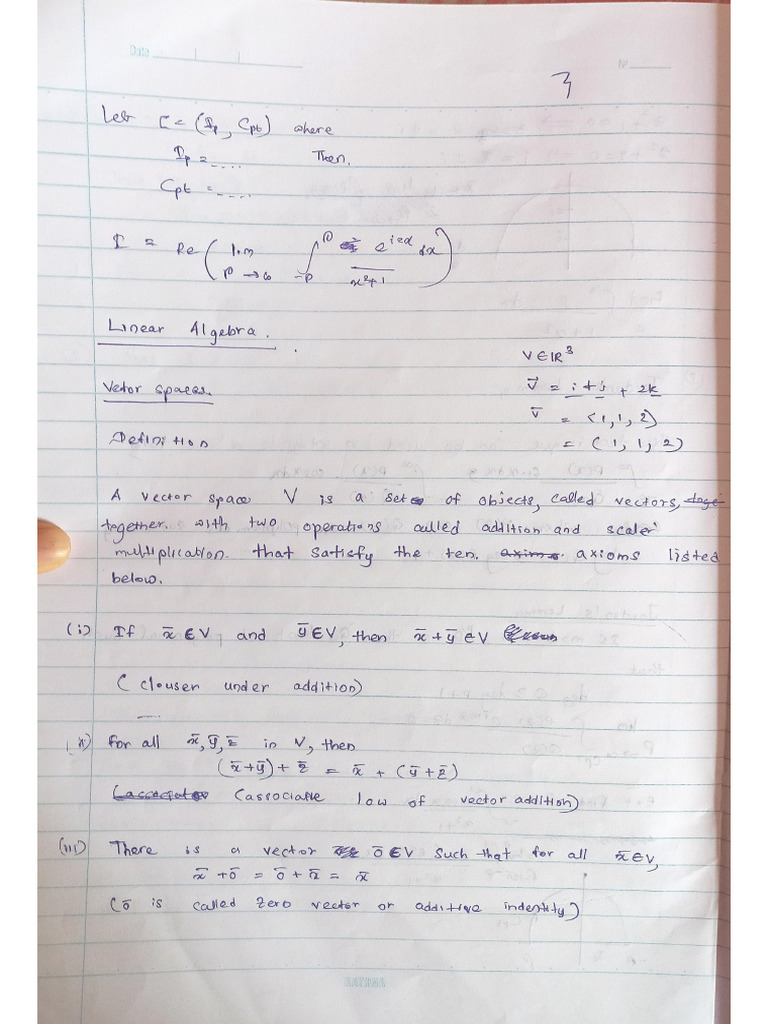 Date
No
3
Let I = (Ip, Cpt) where
Ip = .... Then.
Cpt = ....
I = Re ( lim P → ∞ ∫ -P P e^{izx} dx / x²+1 )
Linear Algebra.
V ∈ IR³
Vetor spaces.
v⃗ = i + j + 2k
v̄ = <1, 1, 2>
Definition
= (1, 1, 2)
A vector space V is a set of objects, called vectors,
together with two operations called addition and scaler
multiplication. that satisfy the ten. axioms listed
below.
(i) If x̄ ∈ V and ȳ ∈ V, then x̄ + ȳ ∈ V
( clouser under addition)
(ii) for all x̄, ȳ, z̄ in V, then
(x̄+ȳ) + z̄ = x̄ + (ȳ + z̄)
(associative low of vector addition)
(iii) There is a vector ō ∈ V such that for all x̄ ∈ V,
x̄ + ō = ō + x̄ = x̄
(ō is called zero vector or additive indentity)